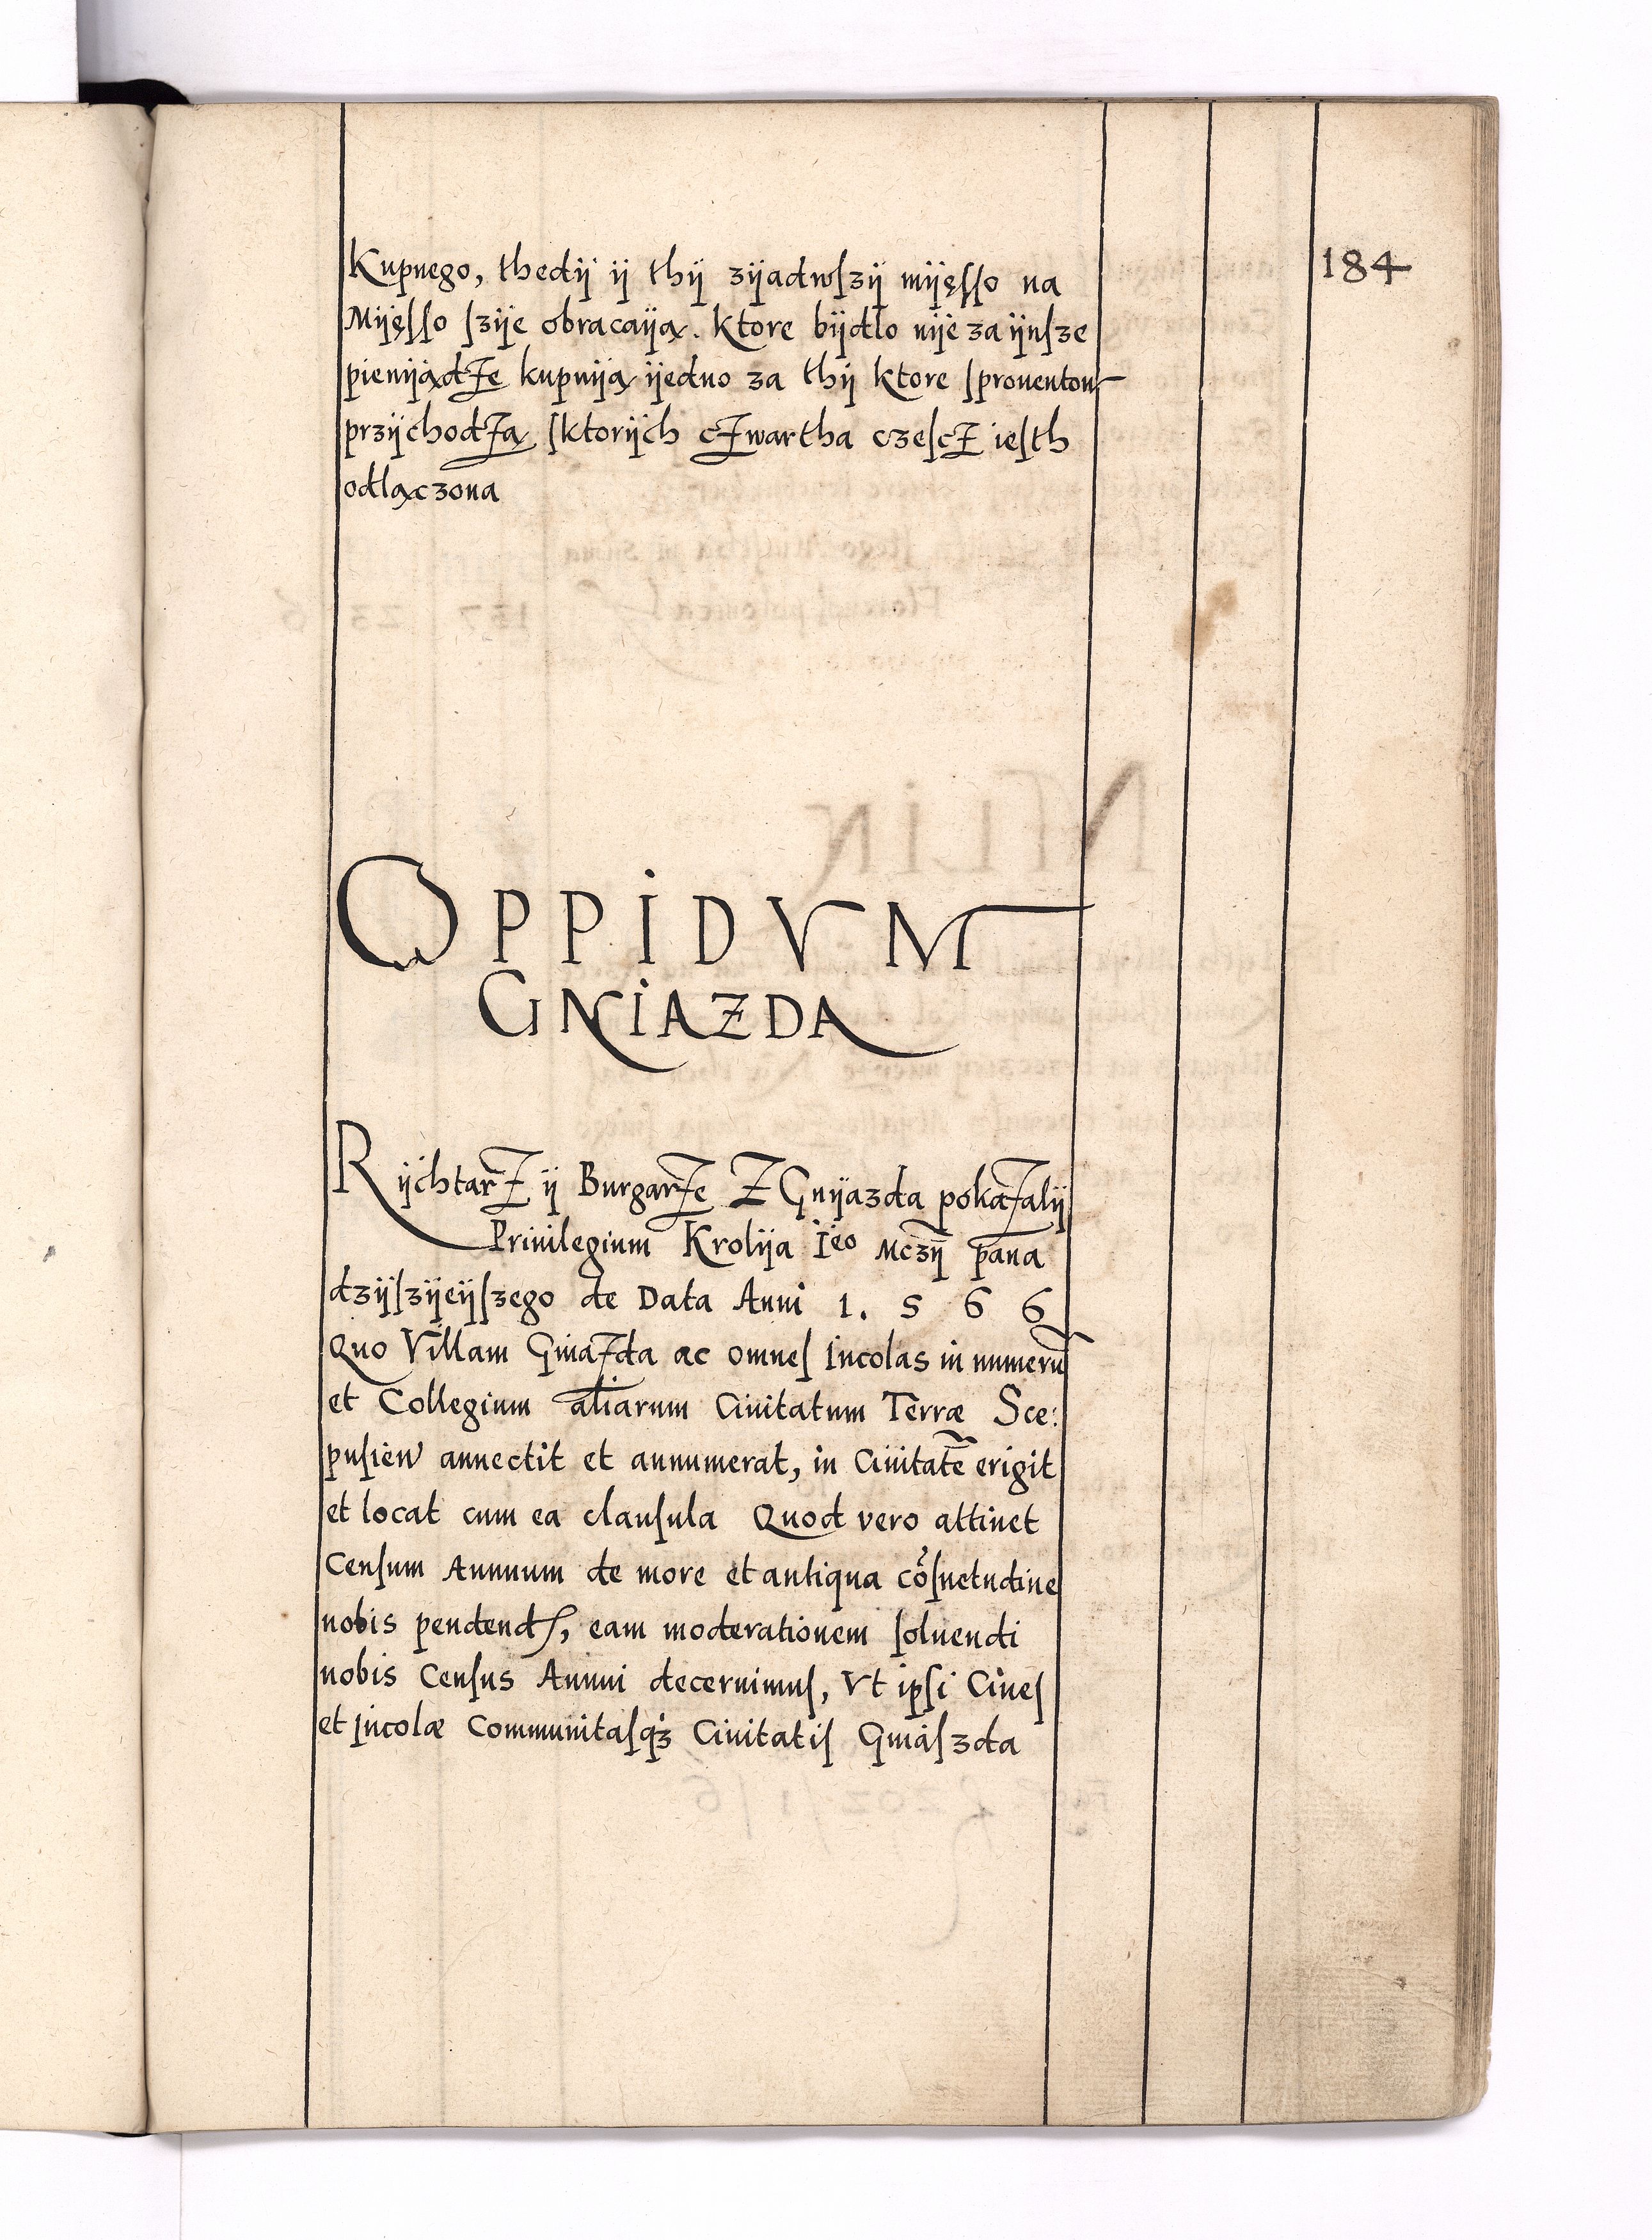 184
Kupnego, thedÿ ÿ thÿ zÿadwſzÿ mÿęſſo na
Mÿęſſo ſzÿe obracaÿą. Ktore bÿdlo nÿe za ÿnſze
pienÿądze kupuÿą ÿedno za thÿ ktore ſprouentow
przÿchodzą ſktorÿch czwartha czeſcz ieſth
odlączona
OPPIDVM
GNIAZDA
Rÿchtarz ÿ Burgarze Z Gnÿazda pokazalÿ
Priuilegium Krolÿa Ieo Mczÿ pana
dzÿſzÿeÿſzego de Data Anni 1. 5 6 6
Quo Villam Gniazda ac omneſ Incolas in numerū
et Collegium aliarum Ciuitatum Terræ Sce:
puſien annectit et annumerat, in Ciuitatē erigit
et locat cum ea clauſula Quod vero attinet
Cenſum Annuum de more et antiqua cōſuetudine
nobis pendend, eam moderationem ſoluendi
nobis Cenſus Annui decernimuſ, Vt ipſi Ciueſ
et Incolæ Communitaſqȝ Ciuitatiſ Gniaſzda